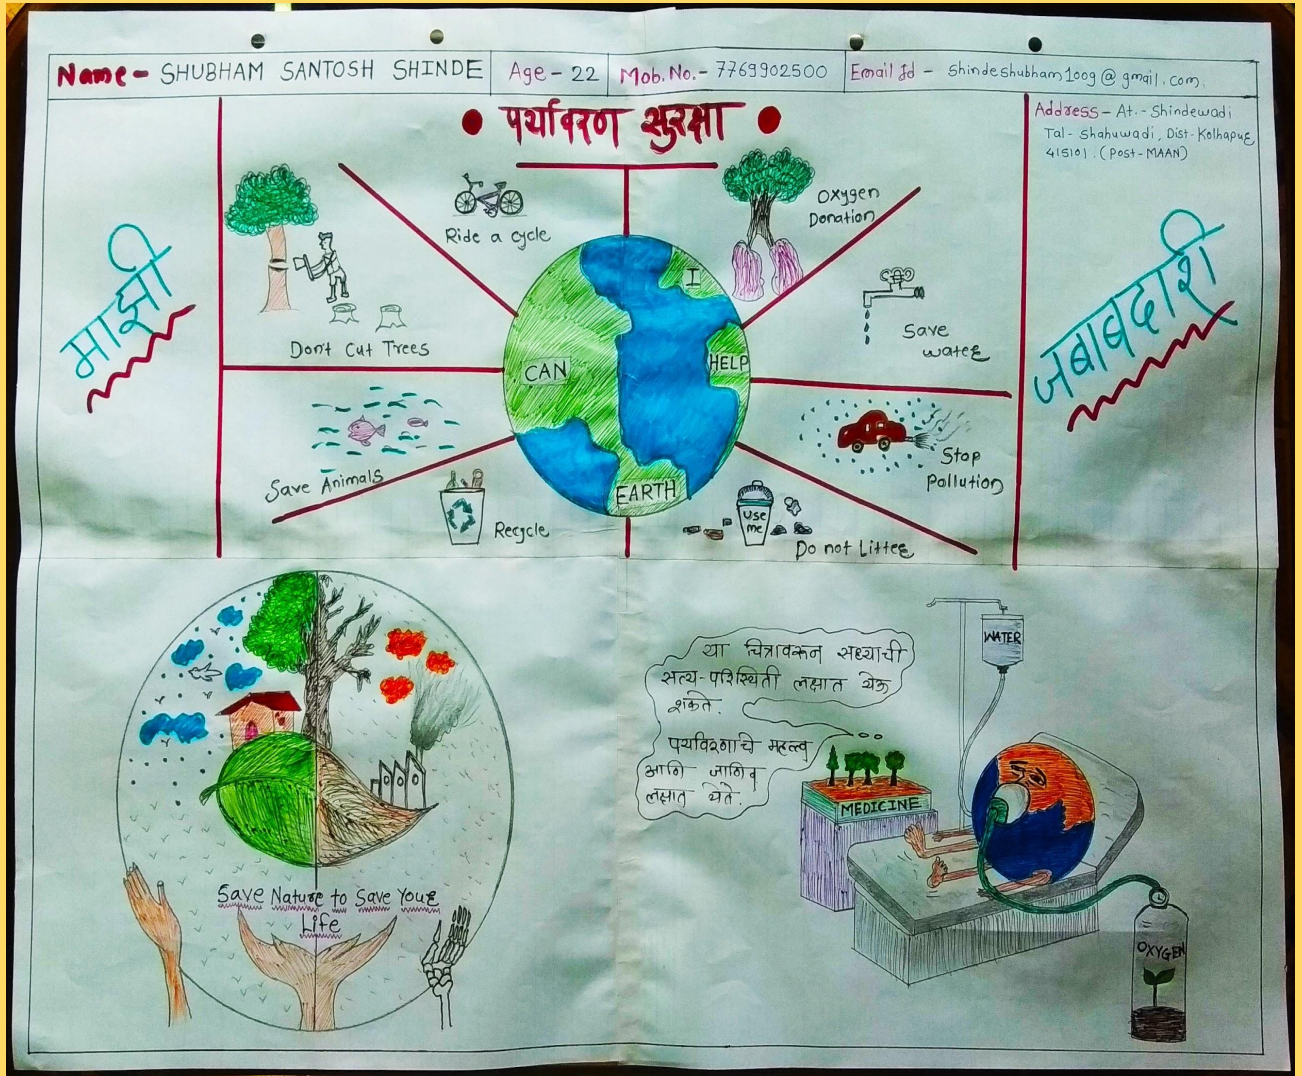 Name - SHUBHAM SANTOSH SHINDE
Age - 22
Mob. No. - 7769902500
Email Id - shindeshubham1009@gmail.com.
Address - At. - Shindewadi
Tal - Shahuwadi, Dist - Kolhapur
415101. (Post - MAAN)
पर्यावरण सुरक्षा
माझी
जबाबदारी
Ride a cycle
Oxygen
Donation
Don't Cut Trees
Save
water
I
CAN
HELP
EARTH
Save Animals
Stop
Pollution
Recycle
Use
me
Do not Litter
Save Nature to Save Your
Life
या चित्रावरून सध्याची
सत्य-परिस्थिती लक्षात येऊ
शकते.
पर्यावरणाचे महत्त्व
आणि जाणिव
लक्षात येते.
WATER
MEDICINE
OXYGEN